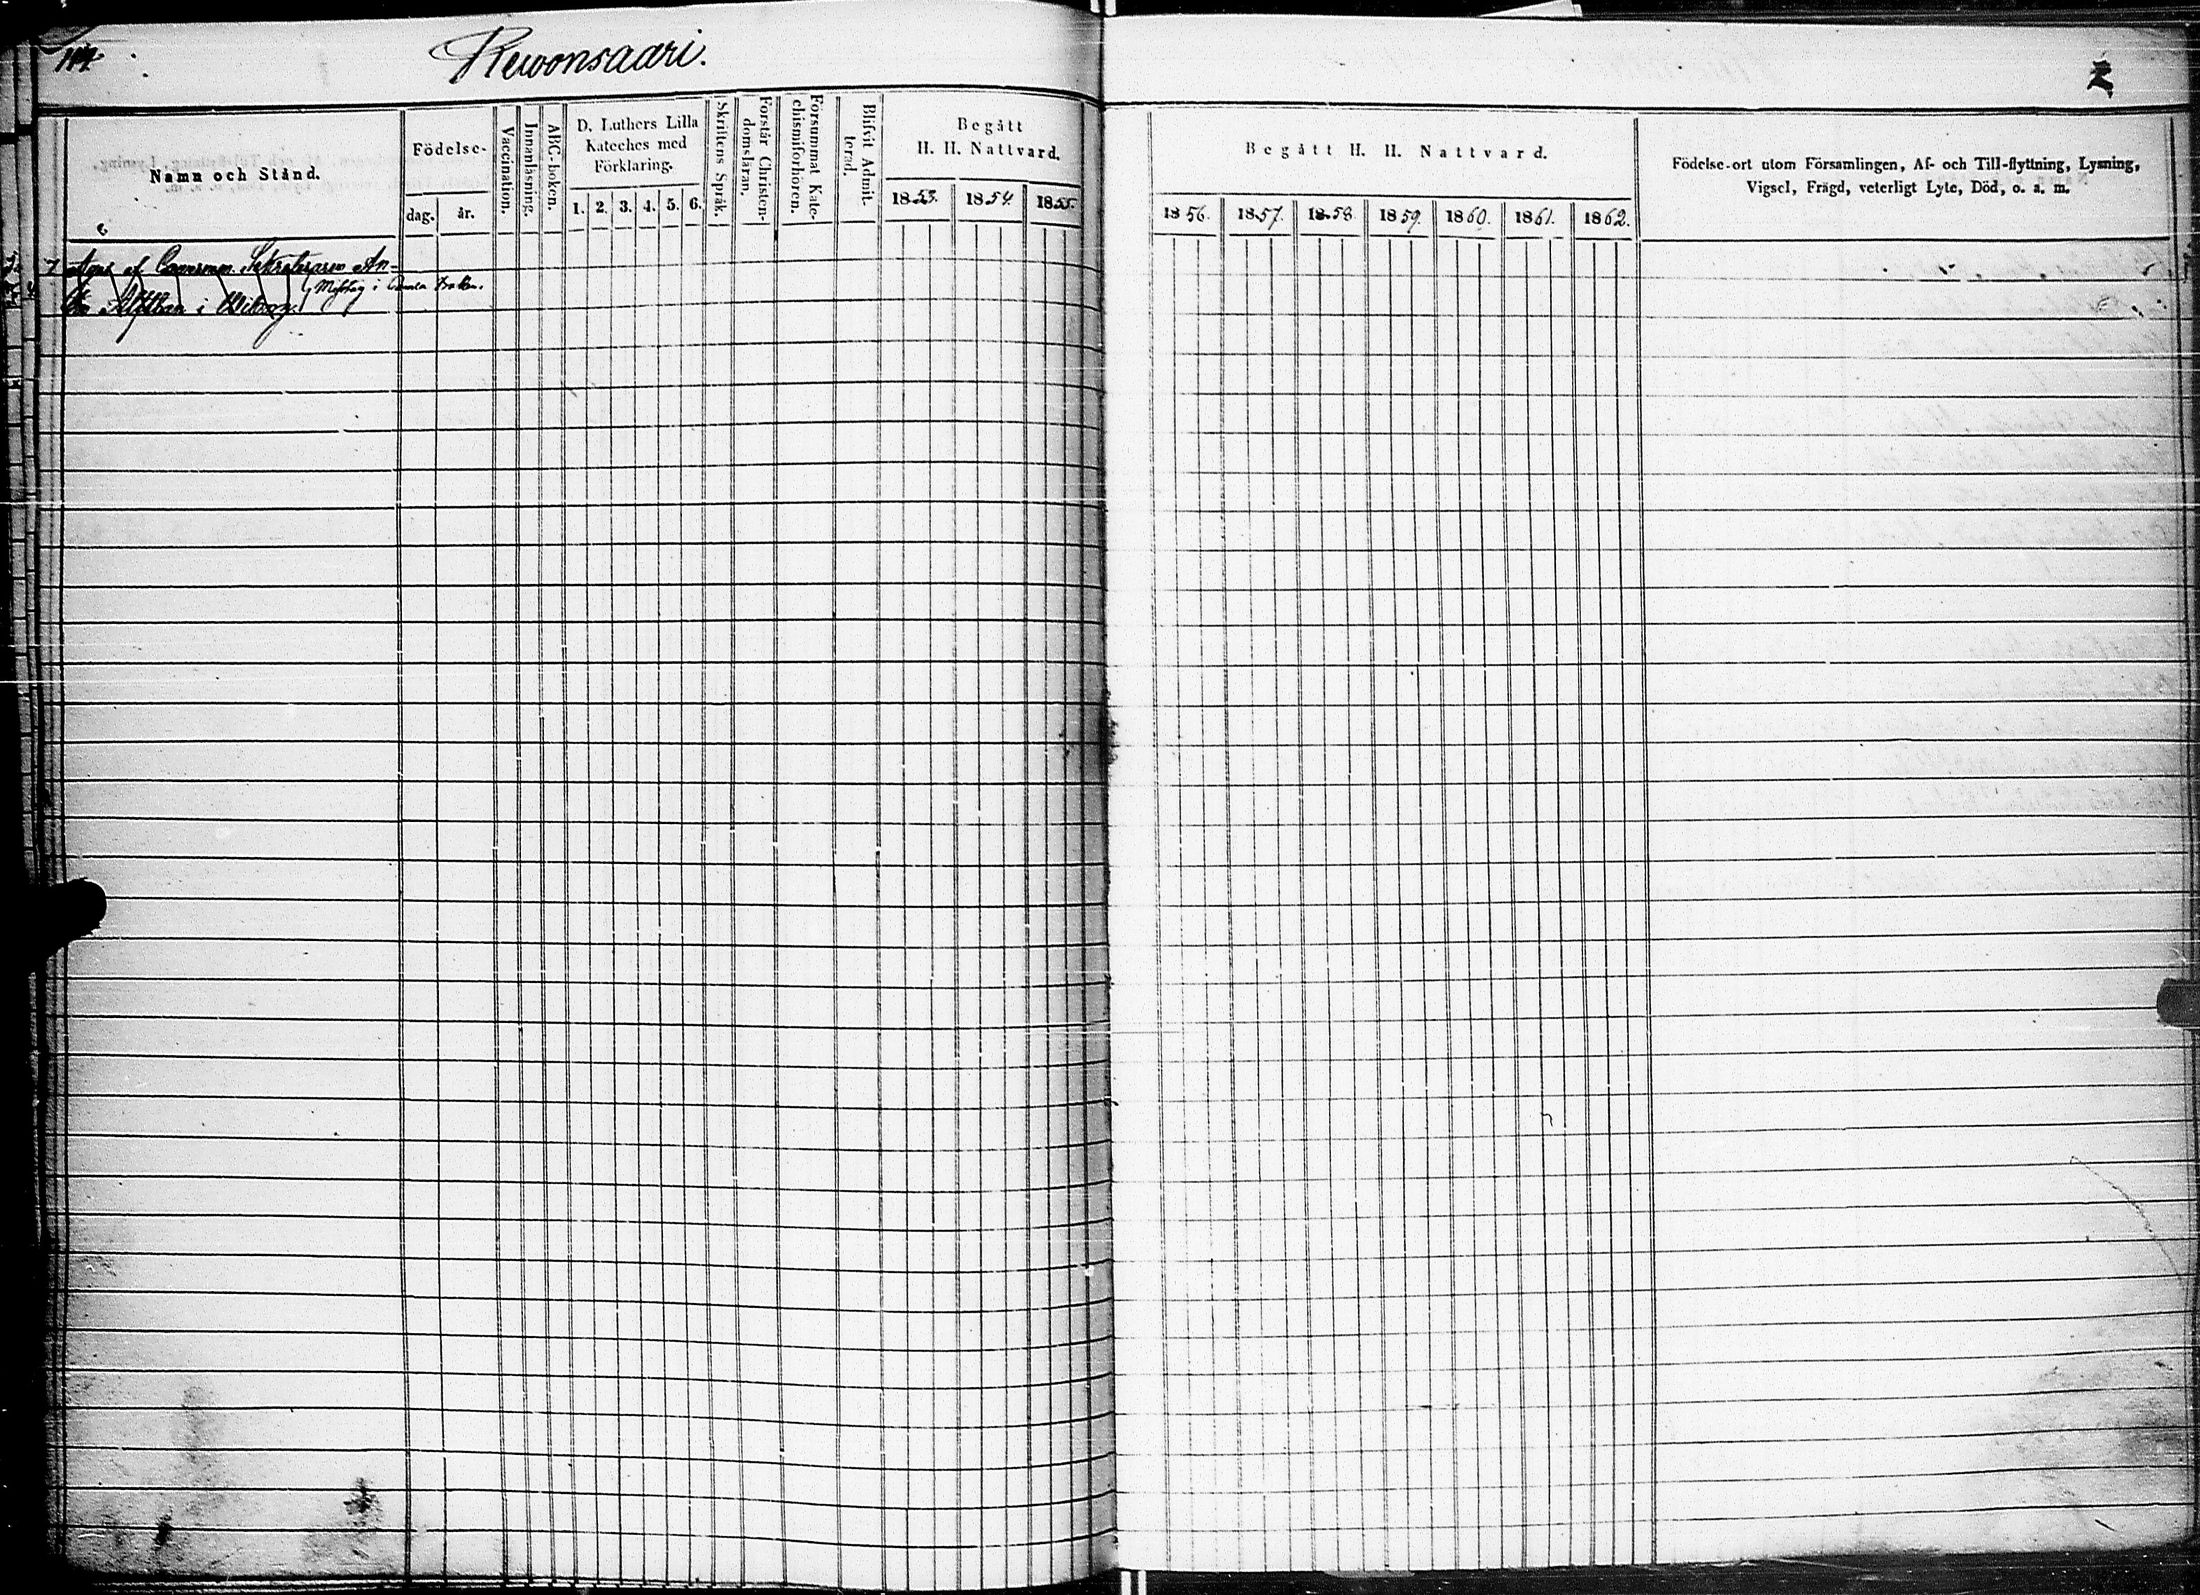 Rewonsaari.
Namn och Stånd.
Födelse-
dag.
år.
Vaccination.
Innanläsning.
ABC-boken.
D. Luthers Lilla
Kateches med
Förklaring.
1. 2. 3. 4. 5. 6.
Skriftens Språk.
Förstår Christen-
domsläran.
Försummat Kate-
chismiförhören.
Blifvit Admit-
terad.
Begått
H. H. Nattvard.
1853. 1854. 1855.
Begått H. H. Nattvard.
1856. 1857. 1858. 1859. 1860. 1861. 1862.
Födelse-ort utom Församlingen, Af- och Till-flyttning, Lysning,
Vigsel, Frägd, veterligt Lyte, Död, o. a. m.
7 af Sekreteraren An-
i
Alfthan i Wiborg.